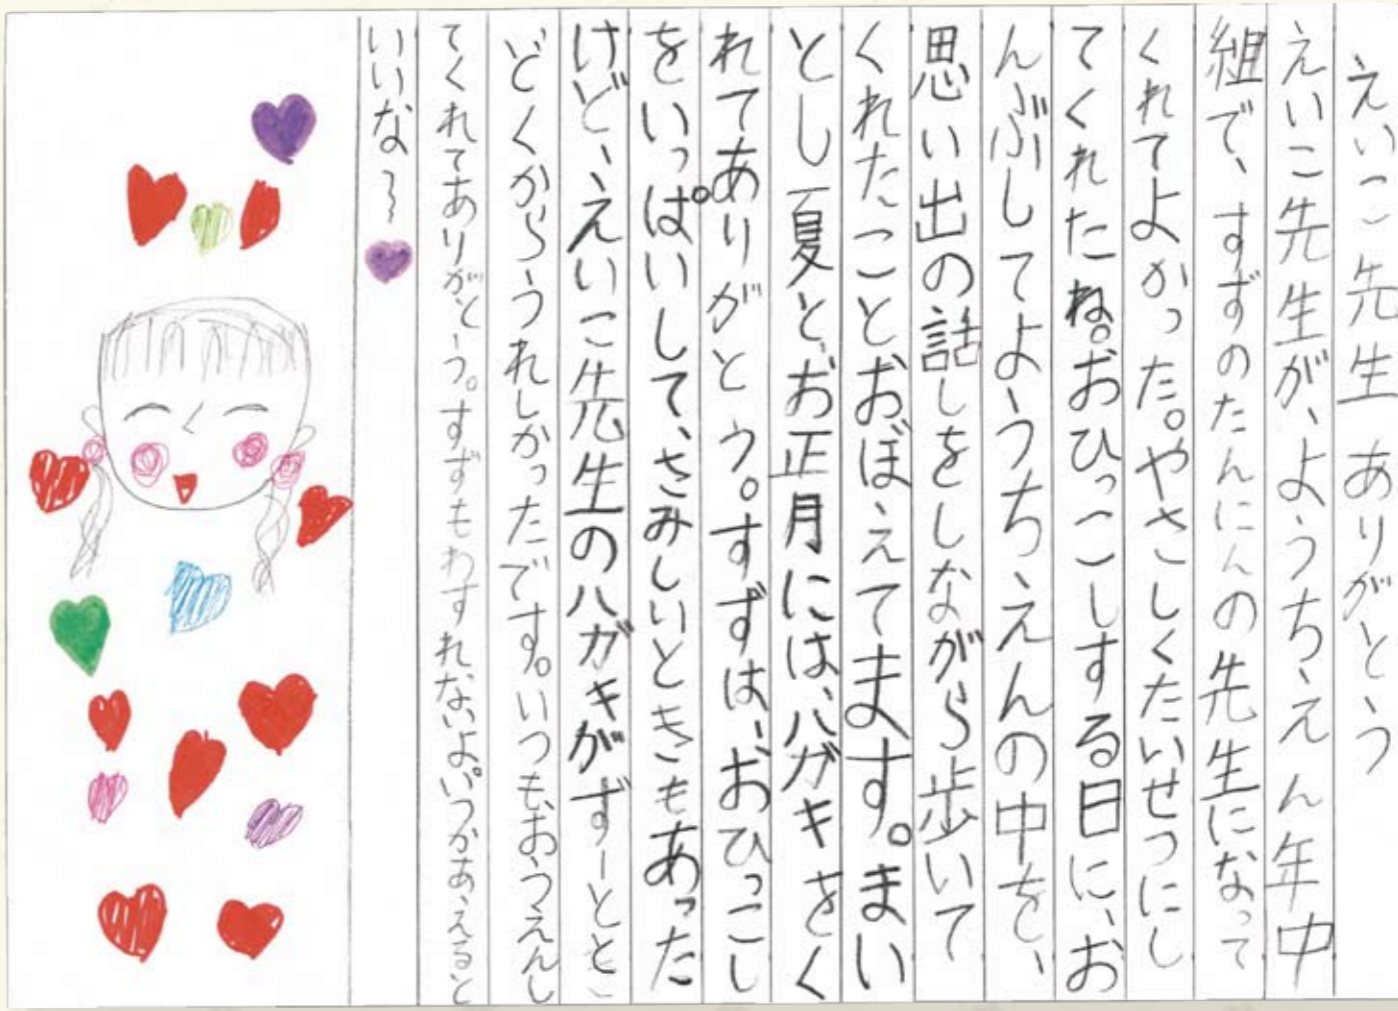 えいこ先生 ありがとう
えいこ先生が、ようちえん年中
組で、すずのたんにんの先生になって
くれてよかった。やさしくたいせつにし
てくれたね。おひっこしする日に、お
んぶしてようちえんの中を、
思い出の話しをしながら歩いて
くれたことおぼえてます。まい
とし夏と、お正月には、ハガキをく
れてありがとう。すずは、おひっこし
をいっぱいして、さみしいときもあった
けど、えいこ先生のハガキがずーっとと
どくからうれしかったです。いつも、おうえんし
てくれてありがとう。すずもわすれないよ。いつかあえると
いいな〜